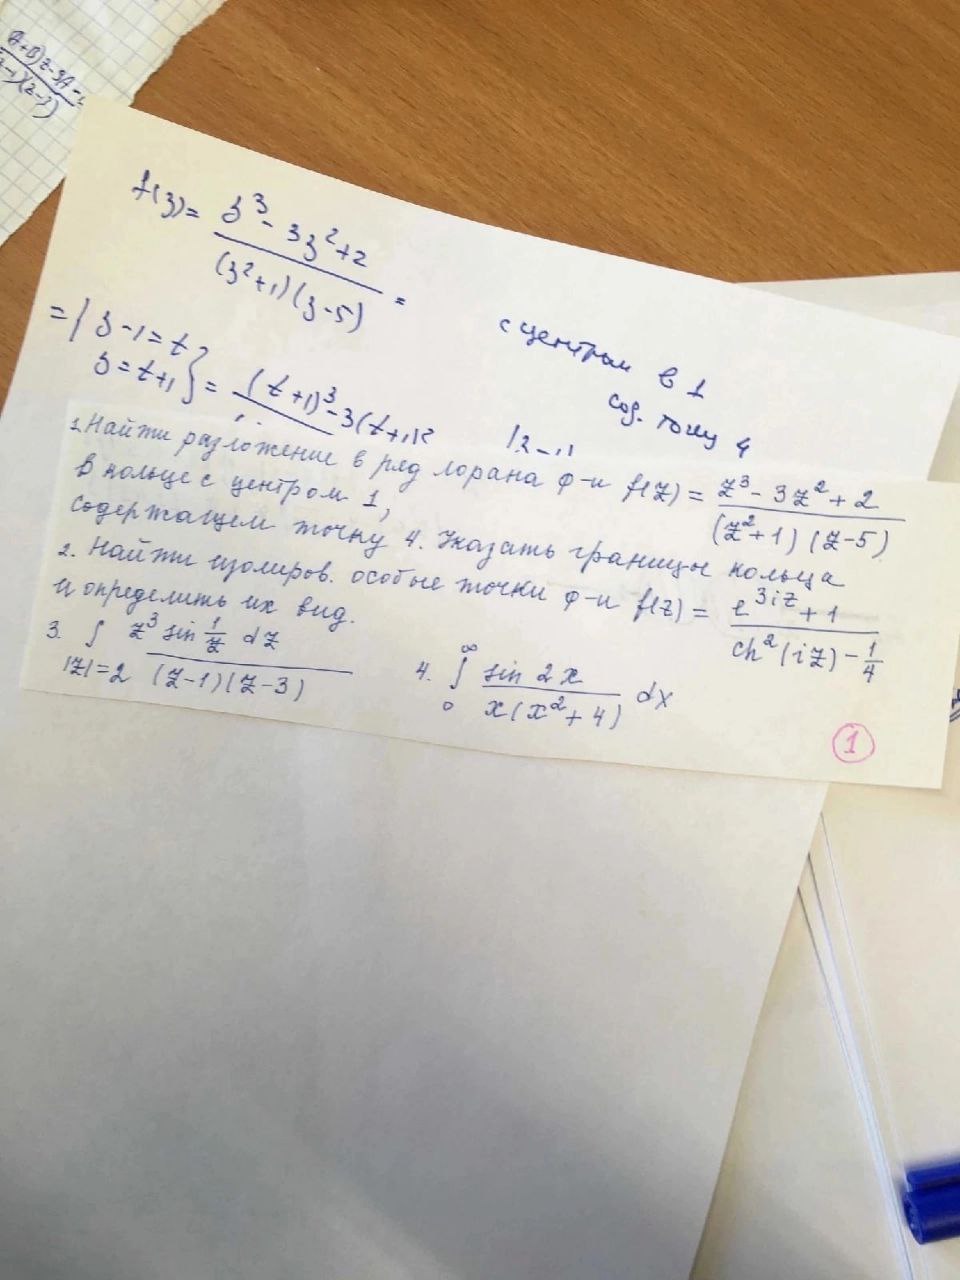 f(z) = z³ - 3z² + 2 / (z² + 1)(z - 5) =
с центром в 1
сод. точку 4
= | z - 1 = t
z = t + 1 } = (t + 1)³ - 3(t + 1)²
1. Найти разложение в ряд Лорана ф-и f(z) = z³ - 3z² + 2 / (z² + 1)(z - 5)
в кольце с центром 1,
содержащем точку 4. Указать границы кольца
2. Найти изолиров. особые точки ф-и f(z) = e^{3iz} + 1 / ch²(iz) - 1/4
и определить их вид.
3. ∫_{|z|=2} z³ sin 1/z dz / (z - 1)(z - 3)
4. ∫_0^∞ sin 2x / x(x² + 4) dx
1